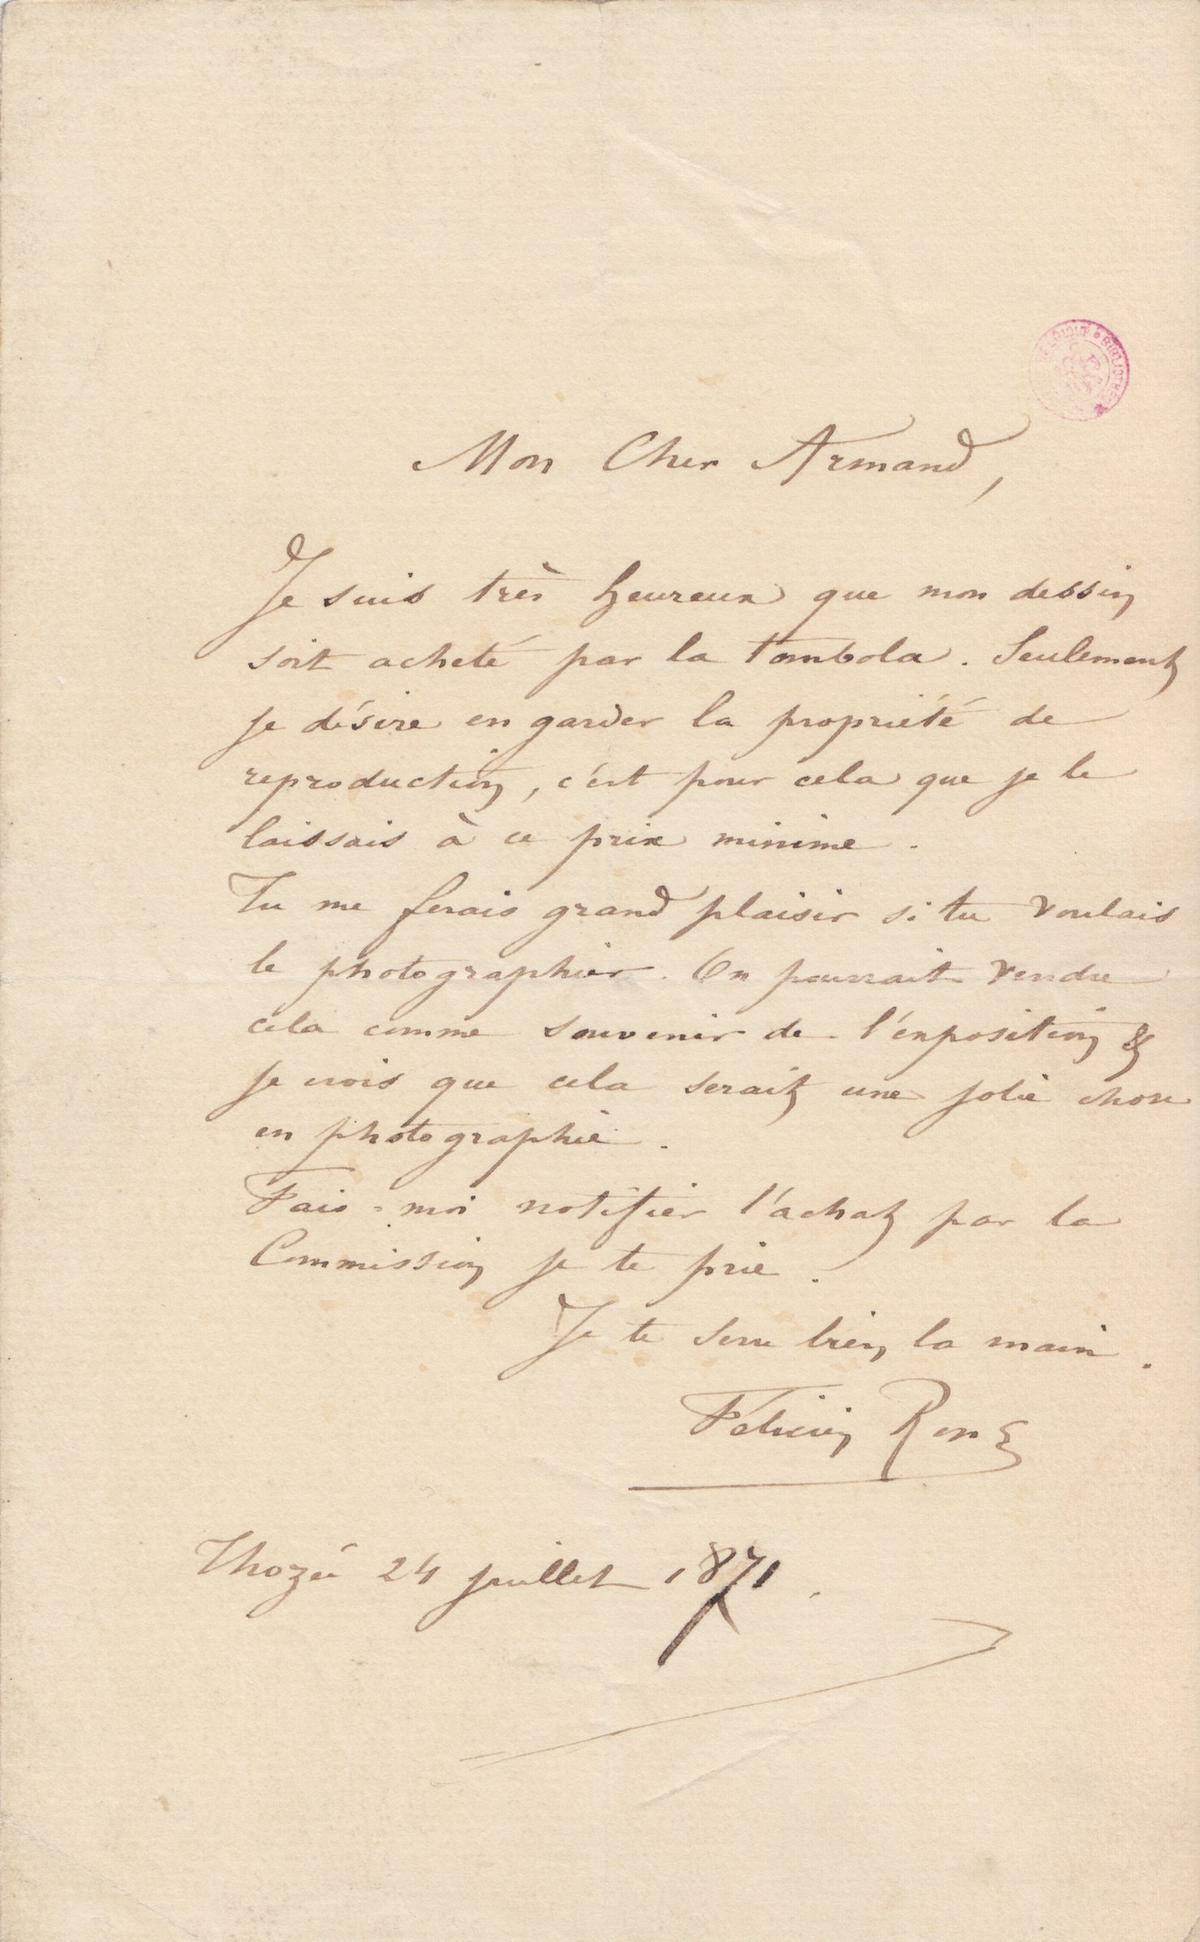 Mon Cher Armand,
Je suis très heureux que mon dessin
soit acheté par la tombola. Seulement
je désire en garder la propriété de
reproduction, c'est pour cela que je le
laissais à ce prix minime.
Tu me ferais grand plaisir si tu voulais
le photographier. On pourrait vendre
cela comme souvenir de l'exposition &
je crois que cela serait une jolie chose
en photographie.
Fais-moi notifier l'achat par la
Commission je te prie.
Je te serre bien la main.
Félicien Rops
Thozée 24 juillet 1871.